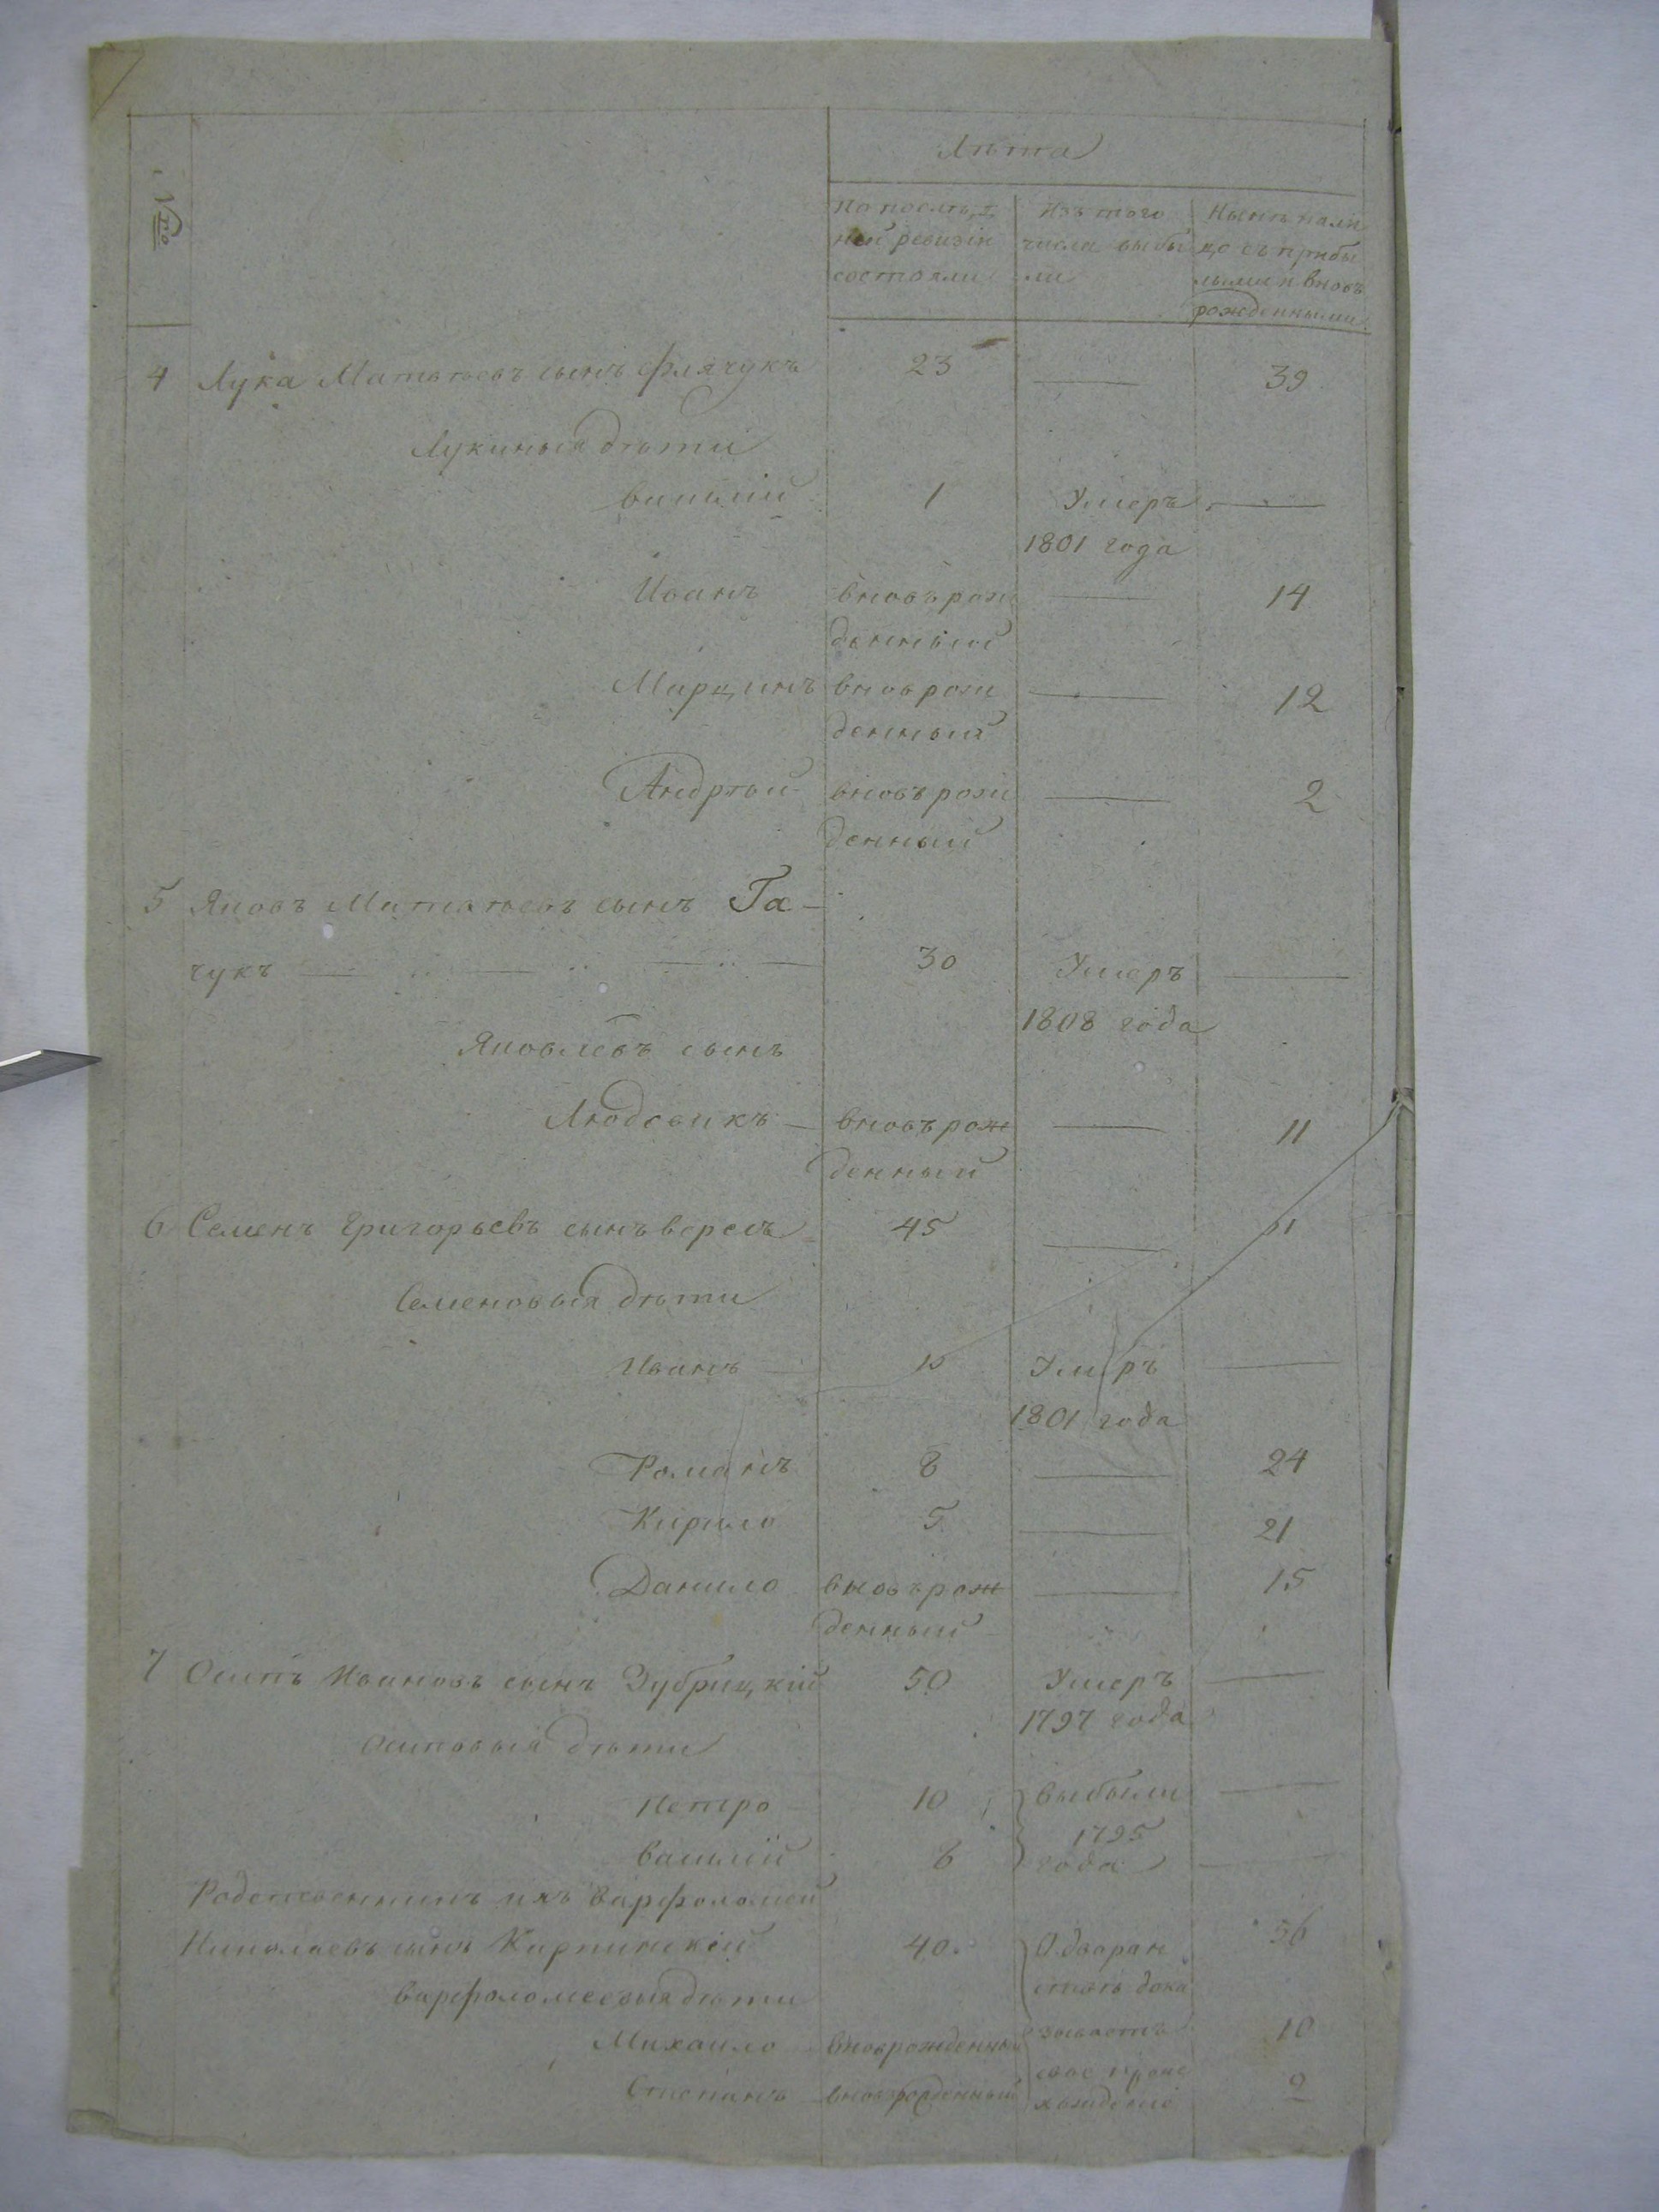 Лѣта
№ ro
По послѣд-
ней ревизіи
состояли
Изъ того
числа выбы
ли
Нынѣ нали
цо съ прибы
лыми и вновь
рожденными
4 Лука Матвѣевъ сынъ Флячукъ 23 — 39
Лукиныя дѣти
Василій 1 Умеръ —
1801 года
Иванъ вновь рож — 14
денный
Марцинъ внов рож — 12
денный
Андрѣй вновь рож — 2
денный
5 Яковъ Матвѣевъ сынъ Га-
чукъ — 30 Умеръ —
1808 года
Яковлевъ сынъ
Людвикъ — вновь рож — 11
денный
6 Семенъ Григорьевъ сынъ 45 — 61
Семеновыя дѣти
Иванъ — 10 Умеръ —
1801 года
Романъ 8 — 24
Кирило 5 — 21
Данило вновь рож — 15
денный
7 Осипъ Ивановъ сынъ Зубрицкій 50 Умеръ —
1797 года
Осиповыя дѣти
Петро 10 выбыли —
1795
Василій 8 года —
Родственникъ ихъ Варфоломей
Николаевъ сынъ Карпинскій 40. О дворян 56
ствѣ дока
Варфоломеевыя дѣти
Михайло вноврожденный зываетъ 10
свое прои
Степанъ вноврожденный хожденіе 2